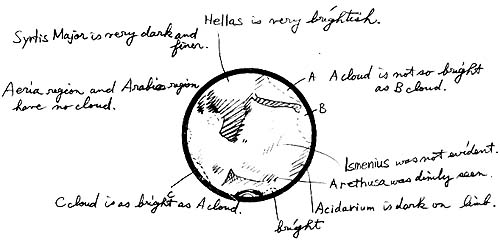 Hellas is very brightish.
Syrtis Major is very dark and
finer.
A
A cloud is not so bright
as B cloud.
Aeria region and Arabia region
have no cloud.
B
Ismenius was not evident.
Arethusa was dimly seen.
C
C cloud is as bright as A cloud.
Acidarium is dark on limb.
bright